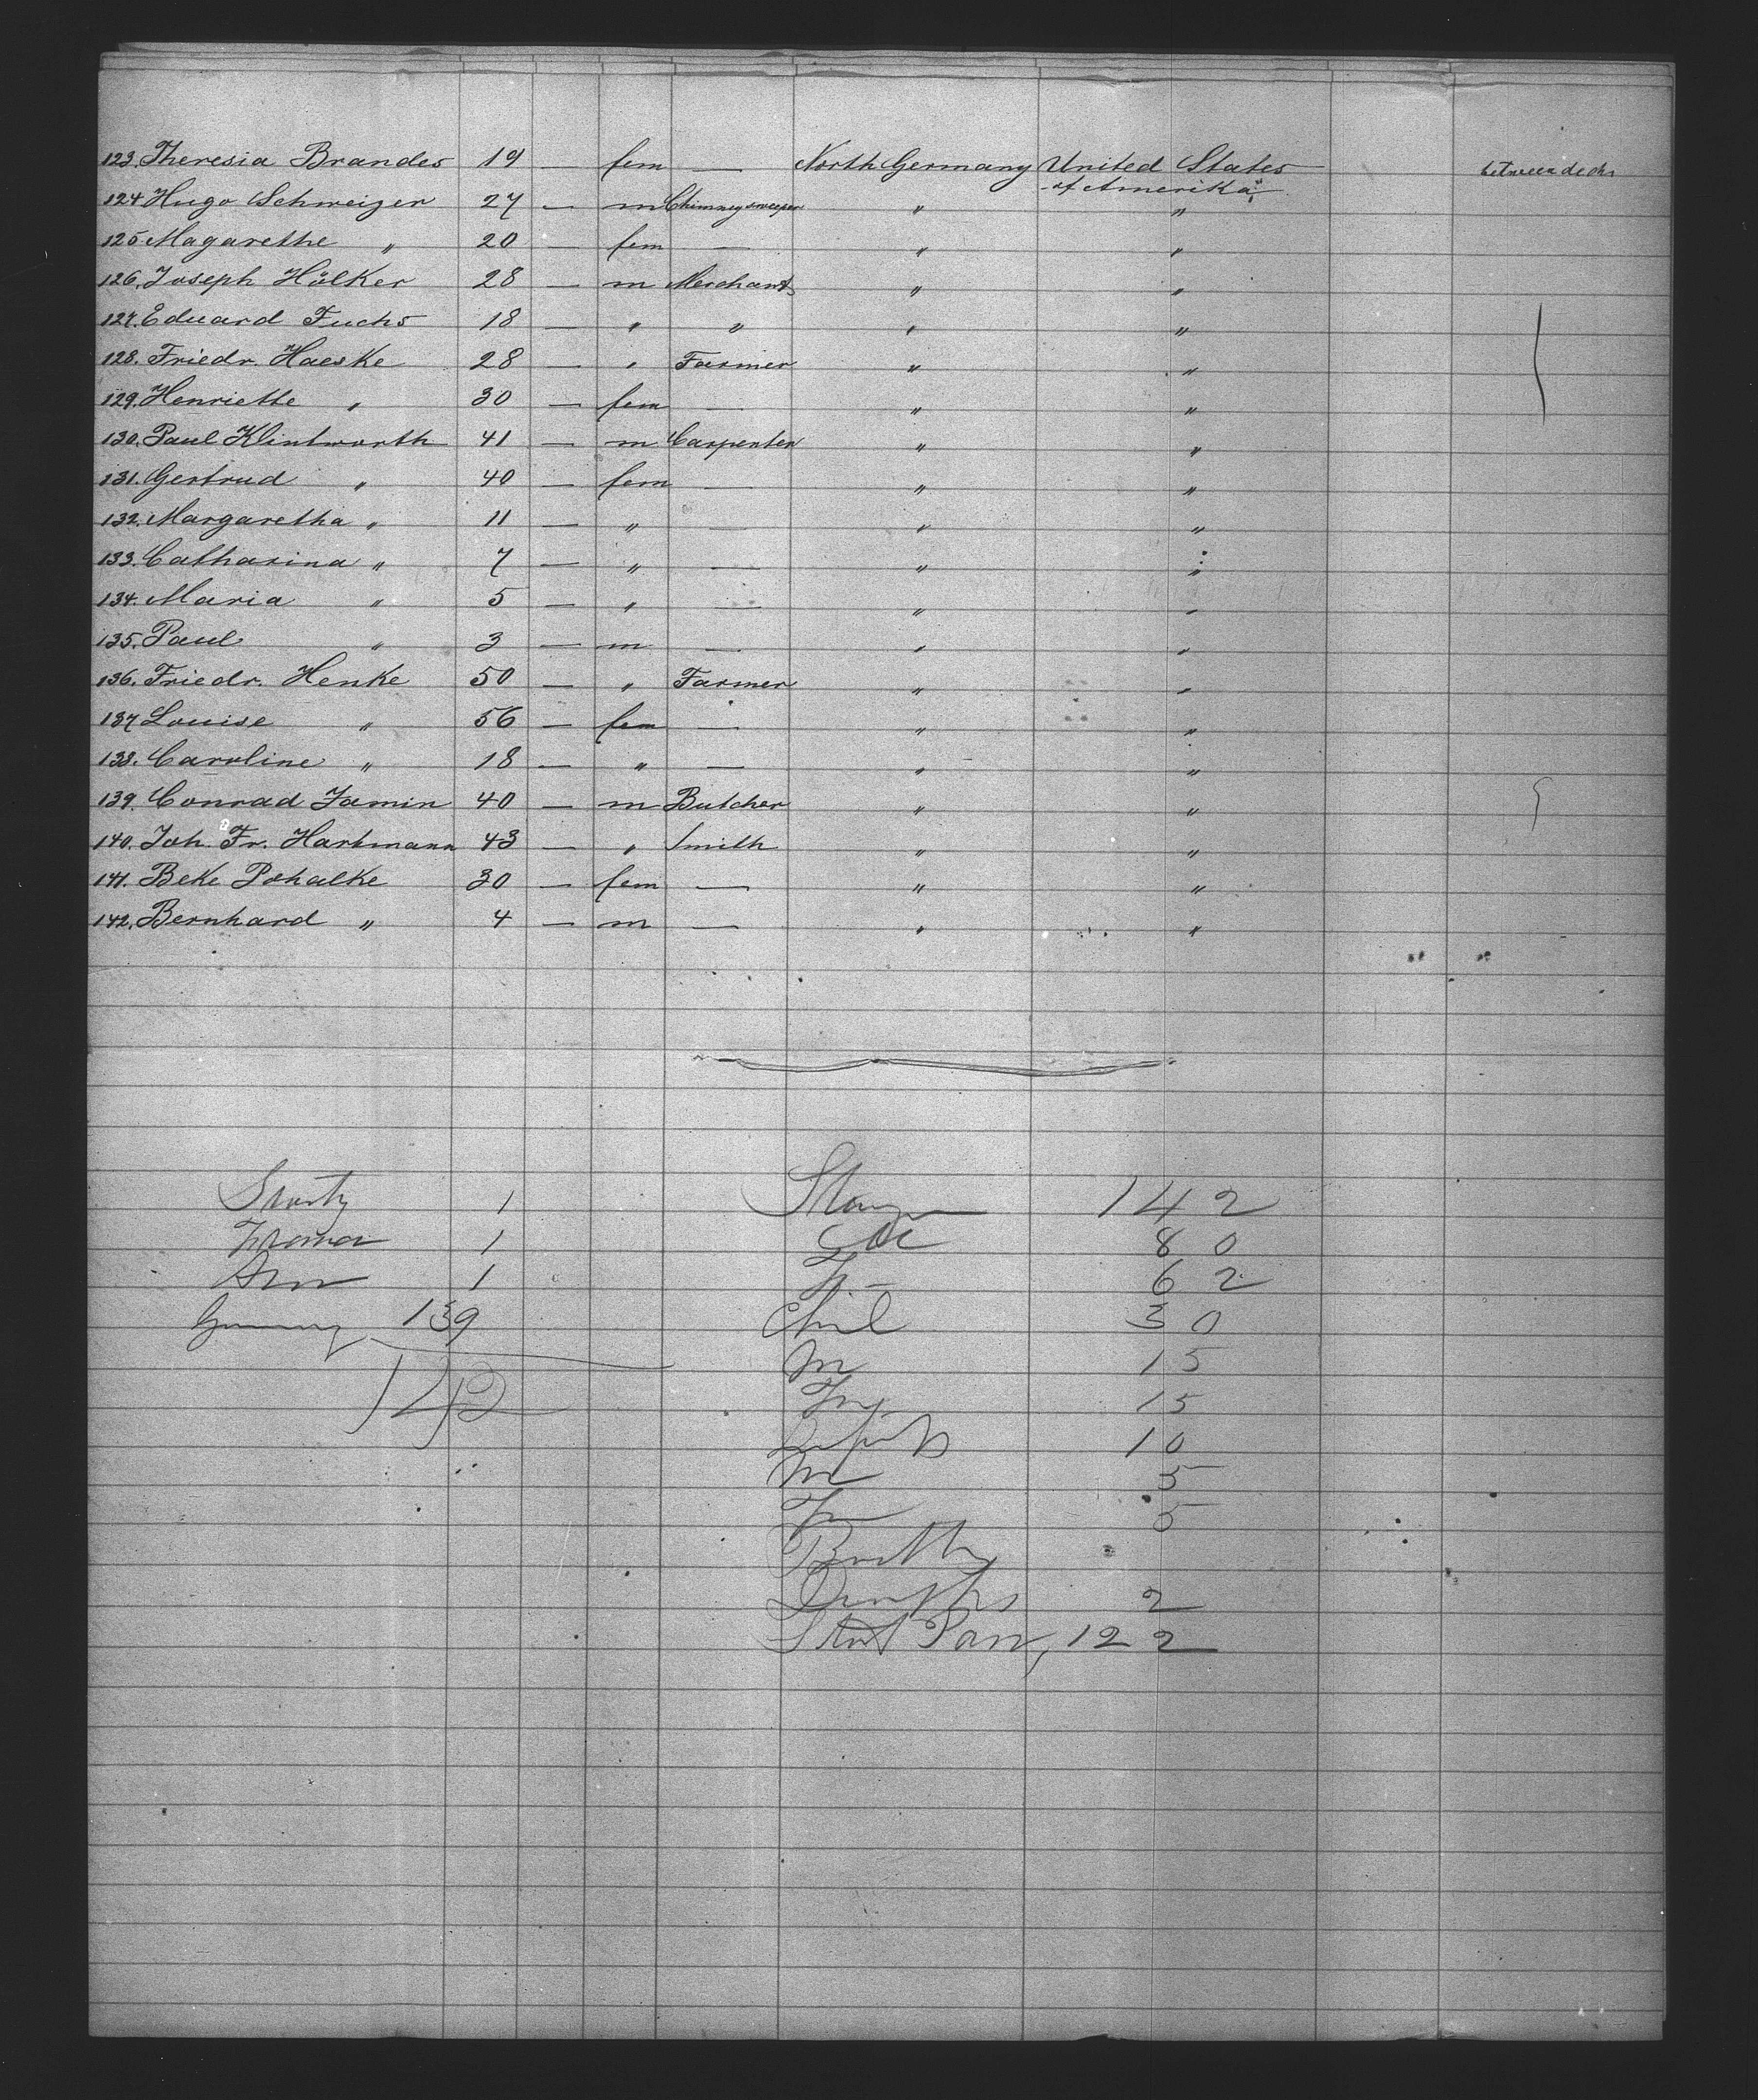 123. Theresia Brandes 19 — fem — North Germany United States between decks
of Amerika
124 Hugo Schweizer 27 — m Chimneysweeper " "
125 Magarethe " 20 — fem — " "
126. Joseph Hölker 28 — m Merchant " "
127. Eduard Fuchs 18 — " " " "
128. Friedr. Haeske 28 — " Farmer " "
129. Henriette " 30 — fem — " "
130. Paul Klintworth 41 — m Carpenter " "
131. Gertrud " 40 — fem — " "
132. Margaretha " 11 — " — " "
133. Catharina " 7 — " — " "
134. Maria " 5 — " — " "
135. Paul " 3 — m — " "
136. Friedr. Henke 50 — " Farmer " "
137 Louise " 56 — fem — " "
138. Caroline " 18 — " — " "
139. Conrad Jamin 40 — m Butcher " "
140. Joh. Fr. Hartmann 43 — " Smith " "
141. Beke Pohalke 30 — fem — " "
142. Bernhard " 4 — m — " "
1 142
1 80
1 F 62
139 Chil 30
142 M 15
F 15
10
M 5
F 5
Deaths 2
122